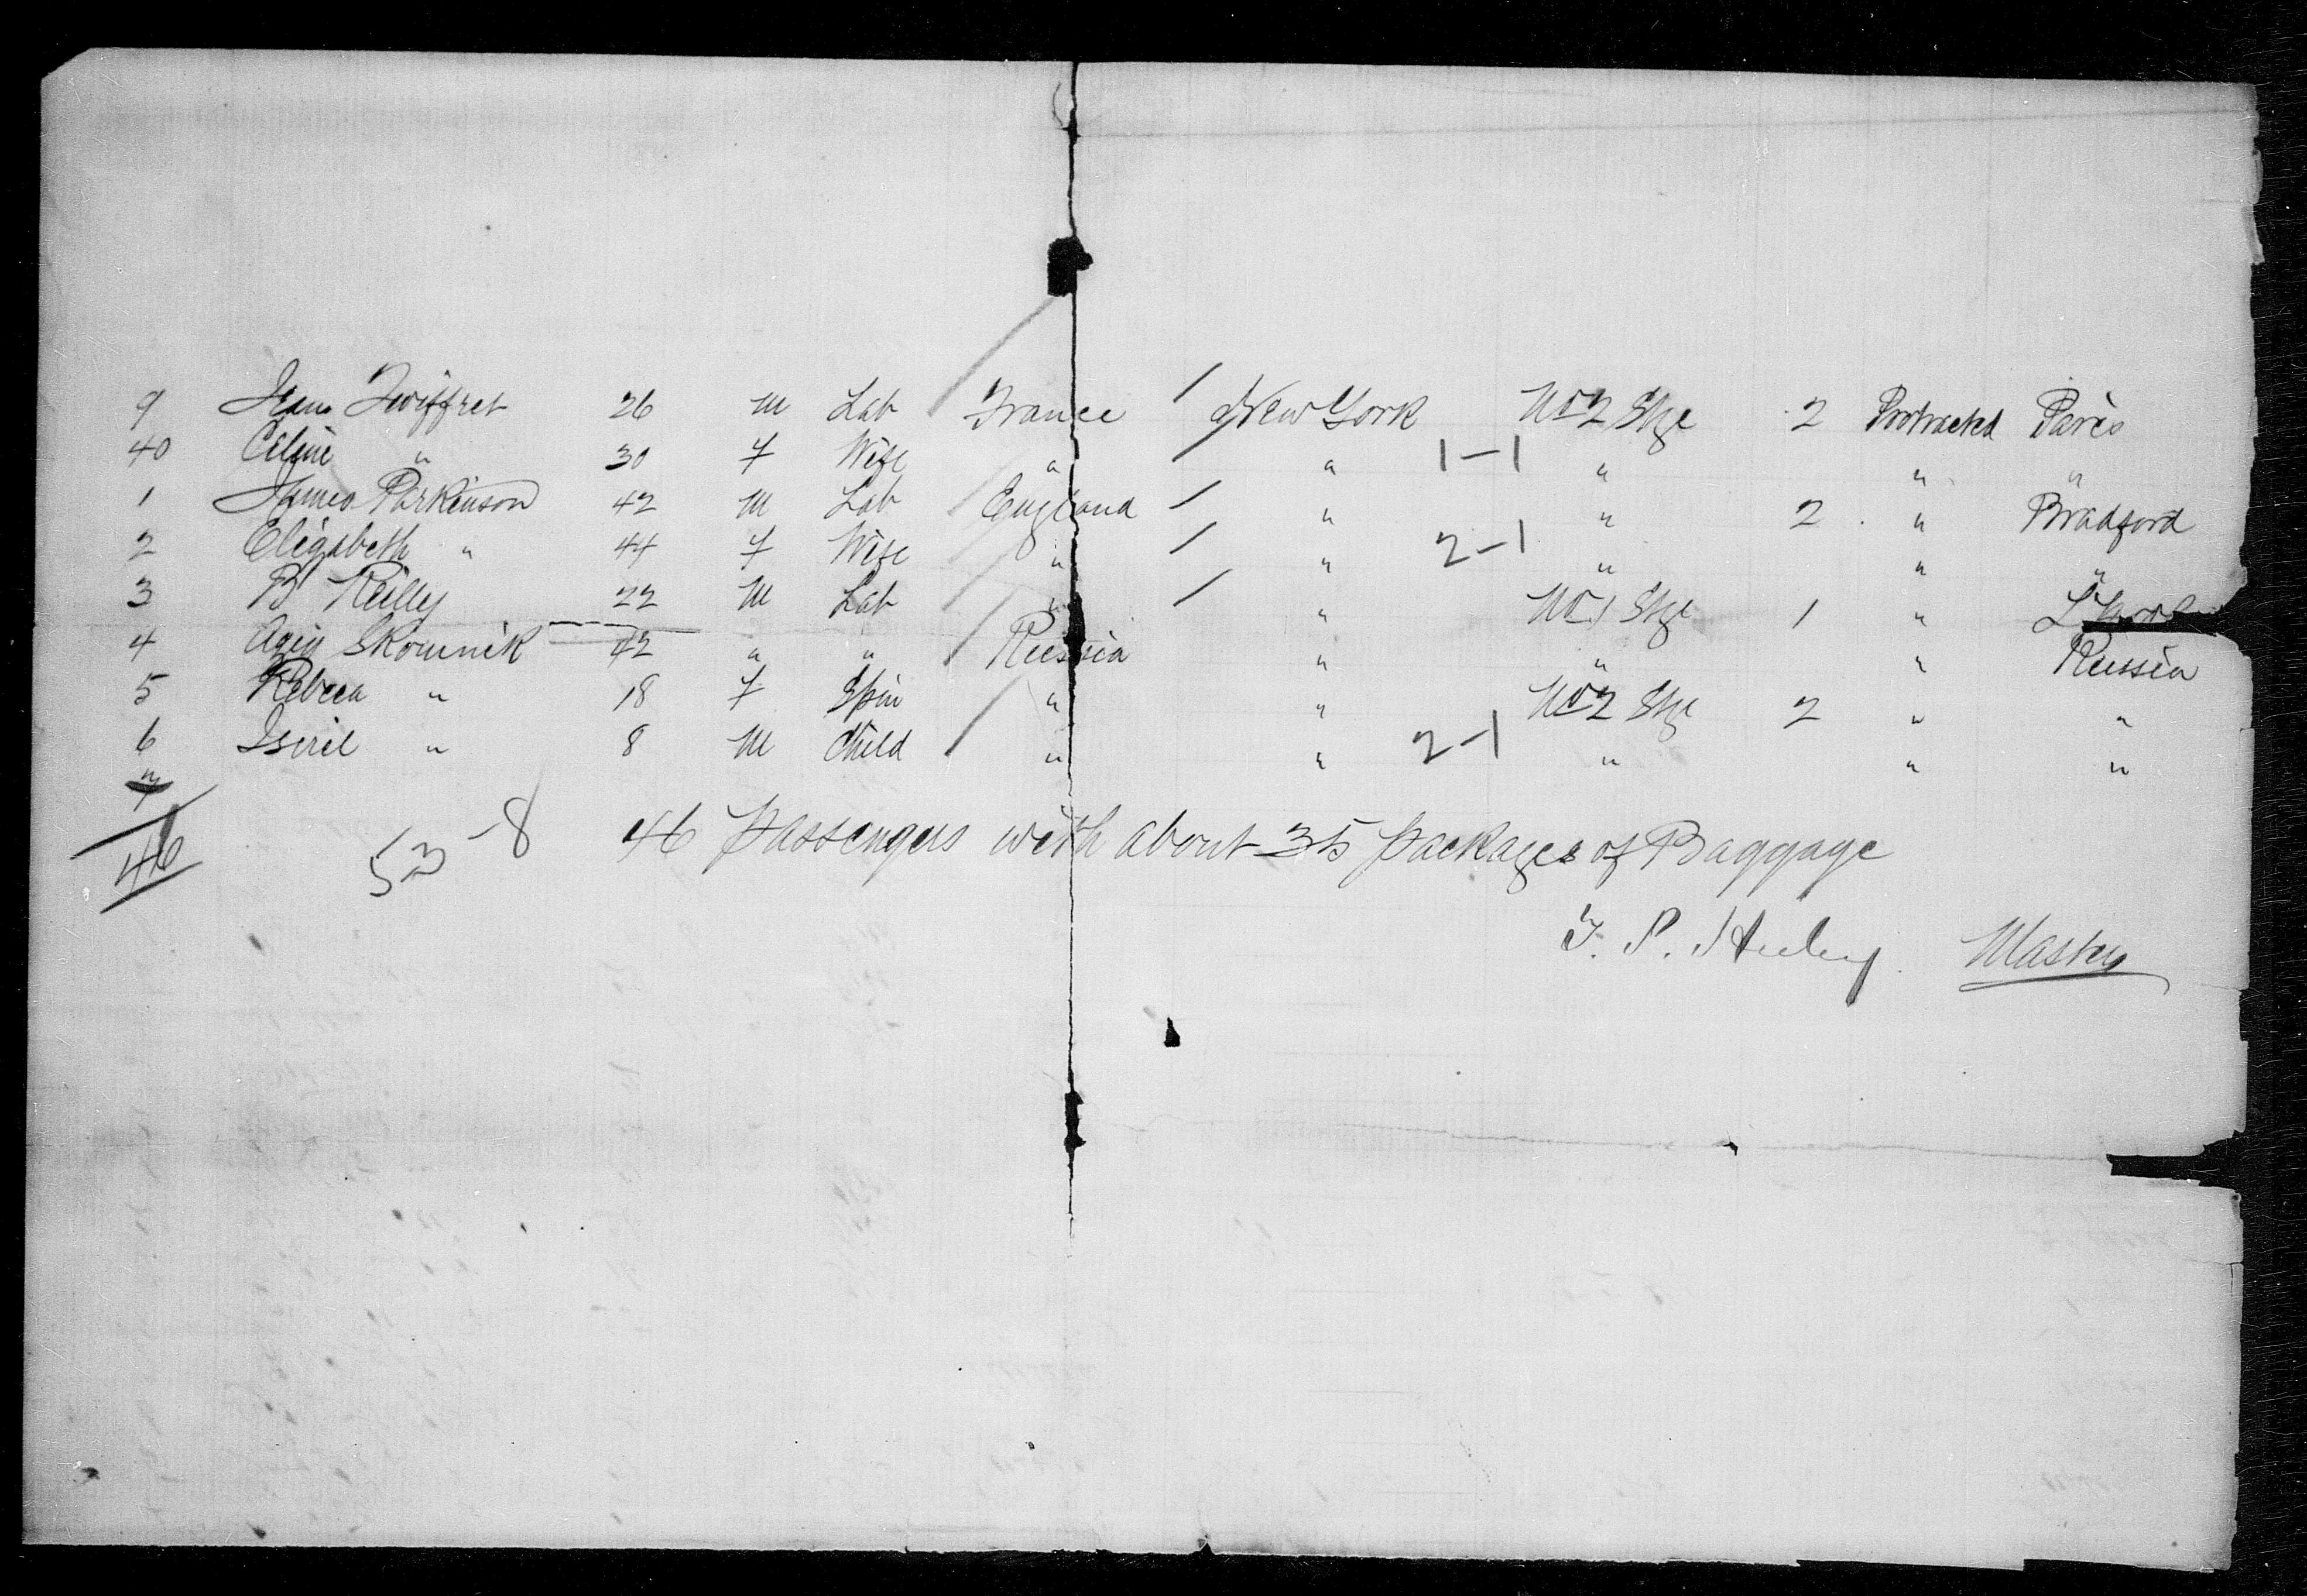 9 Jean Twiffret 26 M Lab France / New York No 2 Stge 2 Protracted Paris
40 Celine " 30 F Wife " / " 1-1 " " "
1 James Parkinson 42 M Lab England / " " 2 " Bradford
2 Elizabeth " 44 F Wife " / " 2-1 " " "
3 B Reilly 22 M Lab " / " No 1 Stge 1 " L'pool
4 Skomnik 42 " " Russia " " " Russia
5 Rebeca " 18 F Spin " " No 2 Stge 2 " "
6 Isirel " 8 M Child " " 2-1 " " "
7
46 53-8 46 Passengers with about 35 packages of Baggage
Master